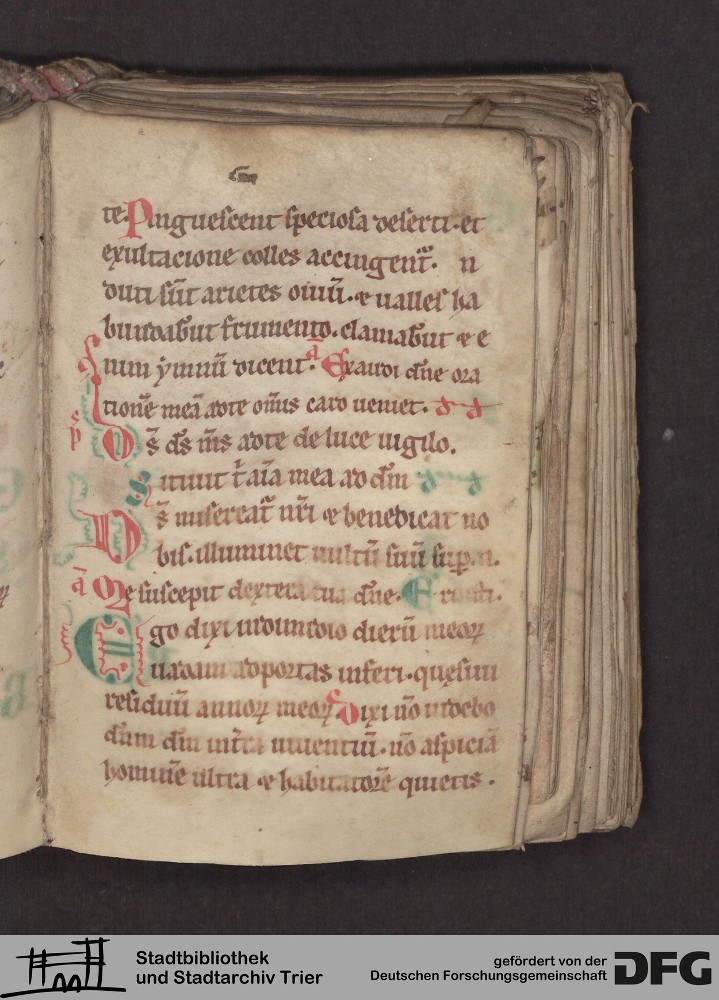 te. Pinguescent speciosa deserti. et
exultacione colles accingent᷑. n
duti sūt arietes ouiū. ⁊ ualles ha
bundabūt frumento. clamabūt ⁊ e
nim ẏmnū dicent. ā Exaudi dn̄e ora
tionē meā ad te om̄is caro ueniet.
ps̄ Ds̄ ds̄ m̄s ad te de luce uigilo.
Sitiuit ī aīa mea ad dm̄
Ds̄ misereat᷑ nr̄i ⁊ benedicat no
bis. illuminet uultū suū sup. n.
ā Me suscepit dextera tua dn̄e.
Ego dixi in dimidio dierū meoꝝ
uadam ad portas inferi. quęsiui
residuū annoꝝ meoꝝ Dixi nō uidebo
dn̄m dm̄ in tr̄a uiuentiū. nō aspiciā
hominē ultra ⁊ habitatorē quietis.
Stadtbibliothek
und Stadtarchiv Trier
gefördert von der
Deutschen Forschungsgemeinschaft
DFG